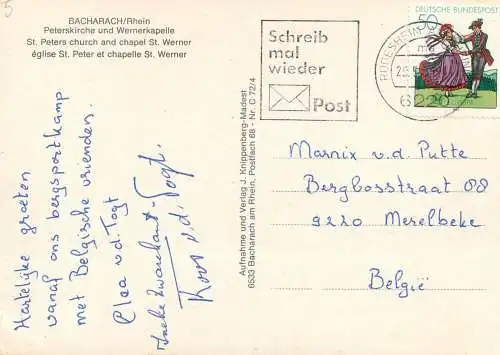 5
BACHARACH/Rhein
Peterskirche und Wernerkapelle
St. Peters church and chapel St. Werner
église St. Peter et chapelle St. Werner
Hartelijke groeten
vanaf ons bergsportkamp
met Belgische vrienden.
Clea v.d. Togt
Ineke Zwanehart-
Koos v.d. Togt.
Aufnahme und Verlag J. Knippenberg-Madest
6533 Bacharach am Rhein, Postfach 68 - Nr. C 72/4
Schreib
mal
wieder
Post
DEUTSCHE BUNDESPOST
50
6220
Marnix v.d. Putte
Bergbosstraat 88
9220 Merelbeke
België